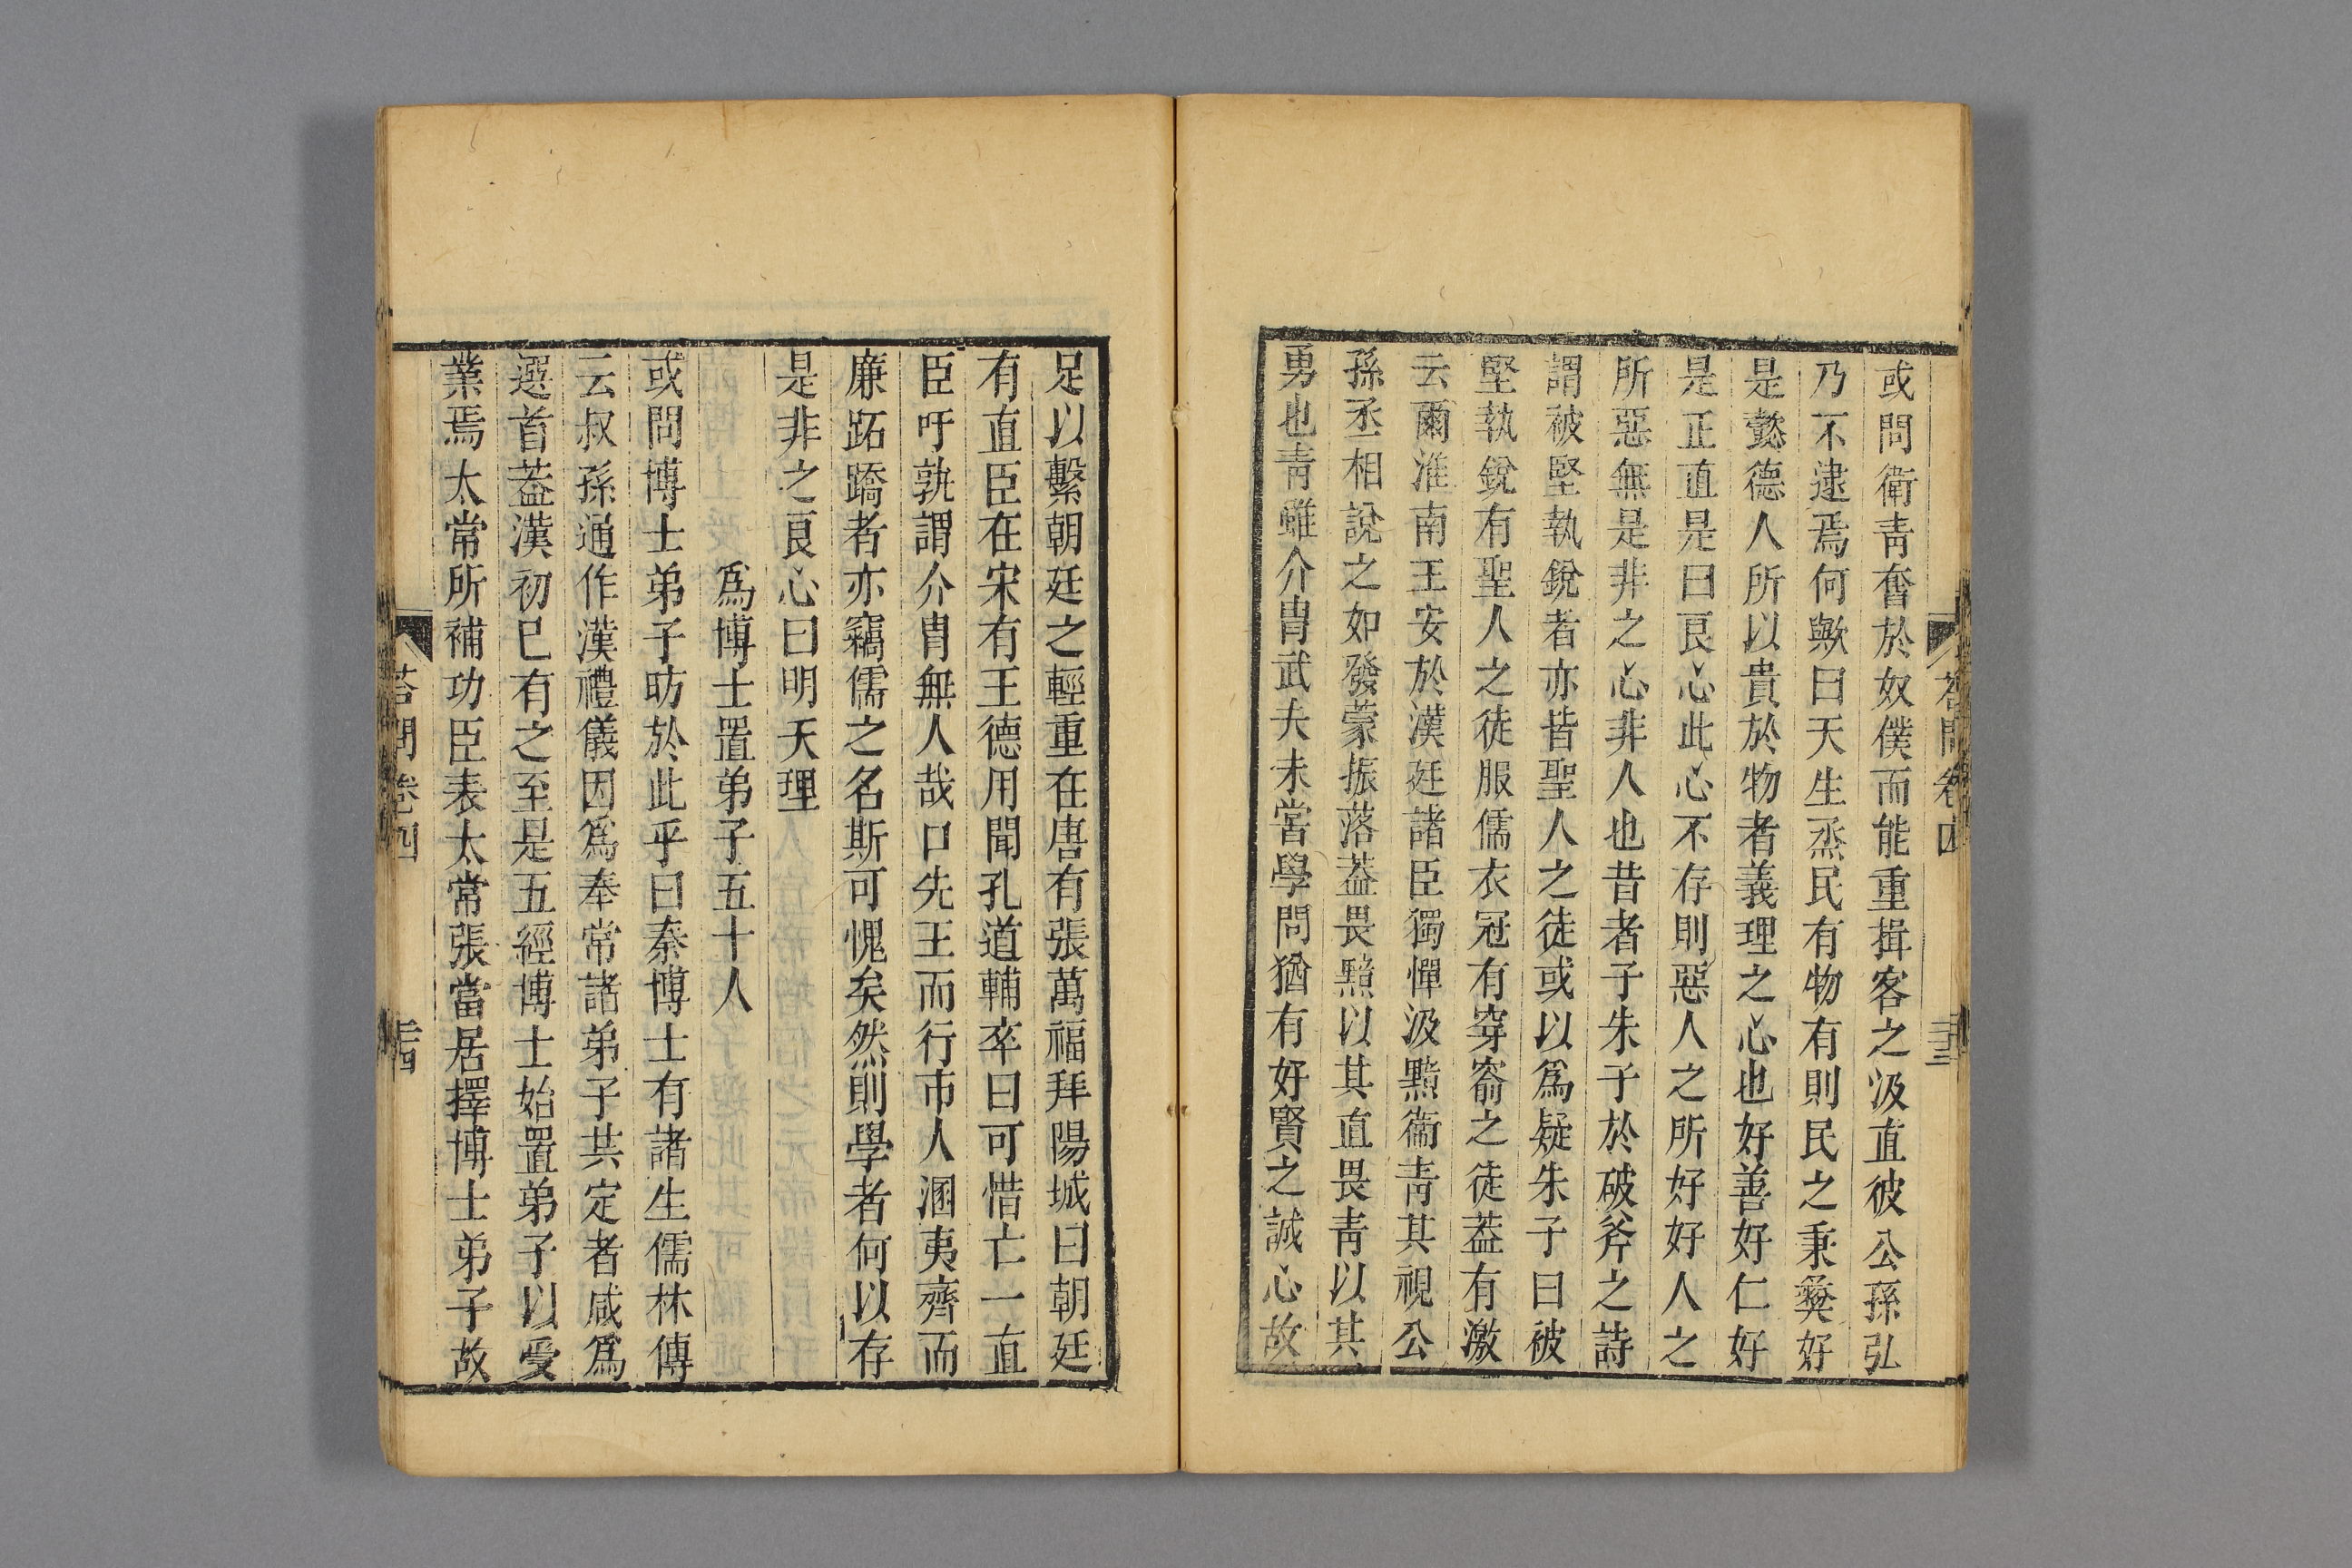 答問卷四 三十三
或問衛青奮於奴僕而能重揖客之汲直彼公孫弘
乃不逮焉何歟曰天生烝民有物有則民之秉彜好
是懿德人所以貴於物者義理之心也好善好仁好
是正直是曰良心此心不存則惡人之所好好人之
所惡無是非之心非人也昔者子朱子於破斧之詩
謂被堅執銳者亦皆聖人之徒或以爲疑朱子曰被
堅執銳有聖人之徒服儒衣冠有穿窬之徒葢有激
云爾淮南王安於漢廷諸臣獨憚汲黯衞青其視公
孫丞相說之如發蒙振落葢畏黯以其直畏青以其
勇也青雖介胄武夫未嘗學問猶有好賢之誠心故
足以繫朝廷之輕重在唐有張萬福拜陽城曰朝廷
有直臣在宋有王德用聞孔道輔卒曰可惜亡一直
臣吁孰謂介胄無人哉口先王而行市人溷夷齊而
廉跖蹻者亦竊儒之名斯可愧矣然則學者何以存
是非之良心曰明天理
爲博士置弟子五十人
或問博士弟子昉於此乎曰秦博士有諸生儒林傳
云叔孫通作漢禮儀因爲奉常諸弟子共定者咸爲
選首葢漢初已有之至是五經博士始置弟子以受
業焉太常所補功臣表太常張當居擇博士弟子故
答問卷四 三十四